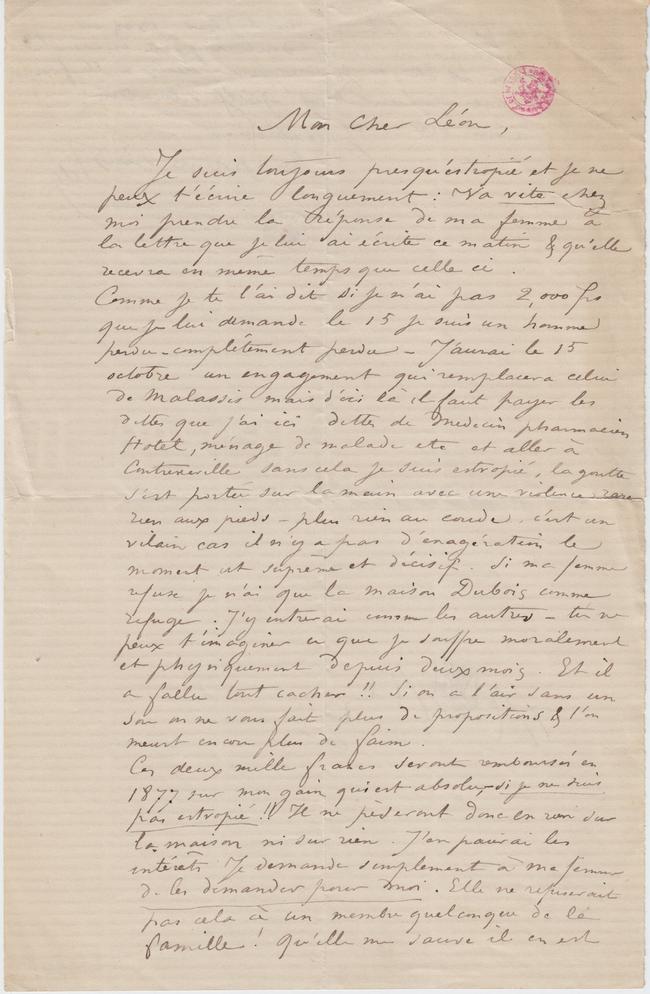 Mon cher Léon,
Je suis toujours presqu'estropié et je ne
peux t'écrire longuement : Va vite chez
moi prendre la réponse de ma femme à
la lettre que je lui ai écrite ce matin & qu'elle
recevra en même temps que celle ci.
Comme je te l'ai dit si je n'ai pas 2,000 frs
que je lui demande le 15 je suis un homme
perdu - complètement perdu - J'aurai le 15
octobre un engagement qui remplacera celui
de Malassis mais d'ici là il faut payer les
dettes que j'ai ici dettes de médecin pharmacien
Hotel, ménage de malade etc et aller à
Contrexeville sans cela je suis estropié, la goutte
s'est portée sur la main avec une violence rare
rien aux pieds - plus rien au coude. c'est un
vilain cas il n'y a pas d'exagération le
moment est suprême et décisif. Si ma femme
refuse je n'ai que la maison Dubois comme
refuge. J'y entrerai comme les autres - tu ne
peux t'imaginer ce que je souffre moralement
et physiquement depuis deux mois. Et il
a fallu tout cacher !! Si on a l'air sans un
sou on ne vous fait plus de propositions & l'on
meurt encore plus de faim.
Ces deux mille francs seront remboursés en
1877 sur mon gain qui est absolu - si je ne suis
pas estropié !! Ils ne pèseront donc en rien sur
la maison ni sur rien. J'en paierai les
intérêts Je demande simplement à ma femme
de les demander pour moi. Elle ne refuserait
pas cela à un membre quelconque de la
famille ! Qu'elle me sauve il en est